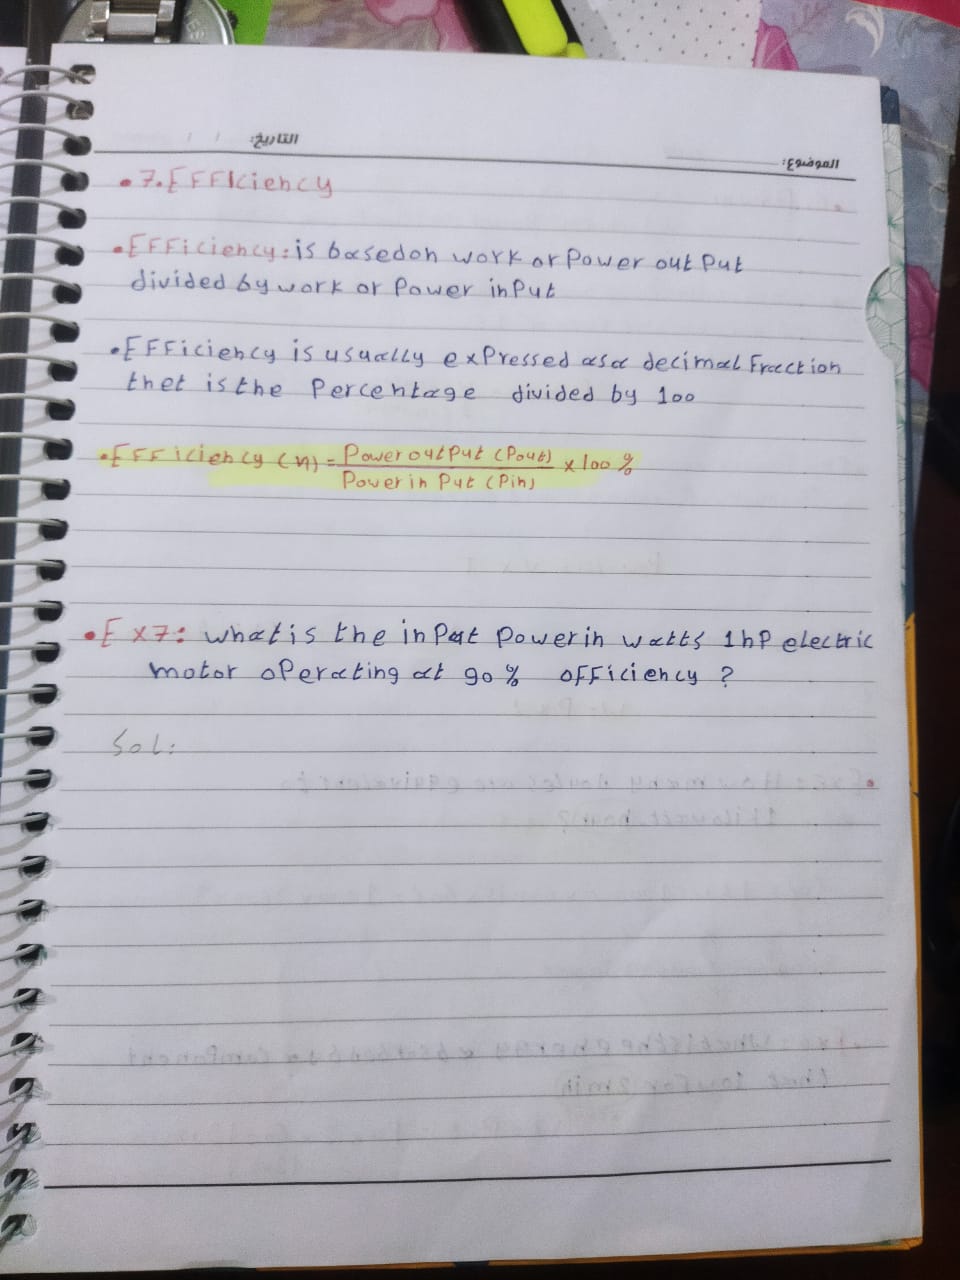 التاريخ: / /
الموضوع:
• 7. Efficiency
• Efficiency: is based on work or Power out Put
divided by work or Power in Put
• Efficiency is usually expressed as a decimal Fraction
thet is the Percentage divided by 100
• Efficiency (η) = Power out Put (Pout) / Power in Put (Pin) × 100 %
• Ex7: what is the in Put Power in watts 1hP electric
motor oPerating at 90 % officiency ?
Sol: